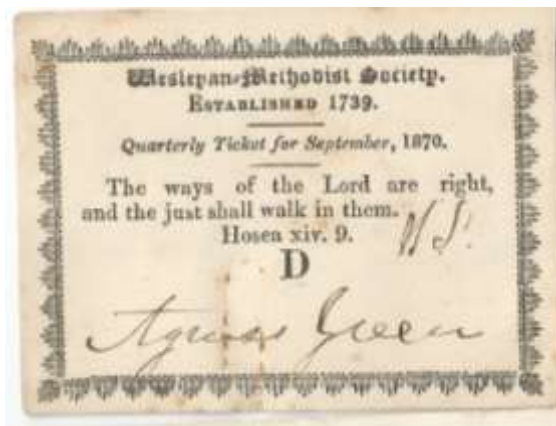 Wesleyan-Methodist Society.
ESTABLISHED 1739.
Quarterly Ticket for September, 1870.
The ways of the Lord are right,
and the just shall walk in them.
Hosea xiv. 9.
D
Agnes Green